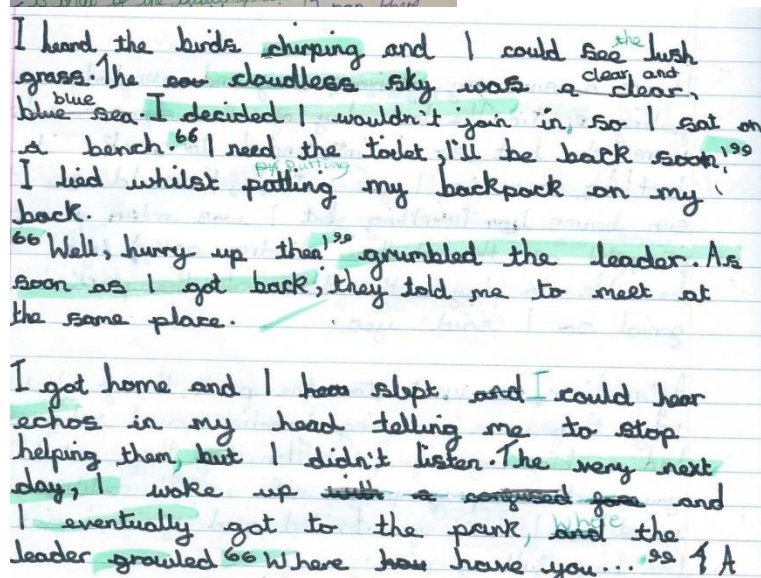 I heard the birds chirping and I could see the lush
grass. The cloudless sky was a clear and clear,
blue blue sea. I decided I wouldn't join in, so I sat on
a bench. "I need the toilet, I'll be back soon,"
I lied whilst putting my backpack on my
back.
"Well, hurry up then!" grumbled the leader. As
soon as I got back, they told me to meet at
the same place.
I got home and I slept. and I could hear
echos in my head telling me to stop
helping them, but I didn't listen. The very next
day, I woke up with a confused face and
I eventually got to the park, where and the
leader growled "Where have you..." A